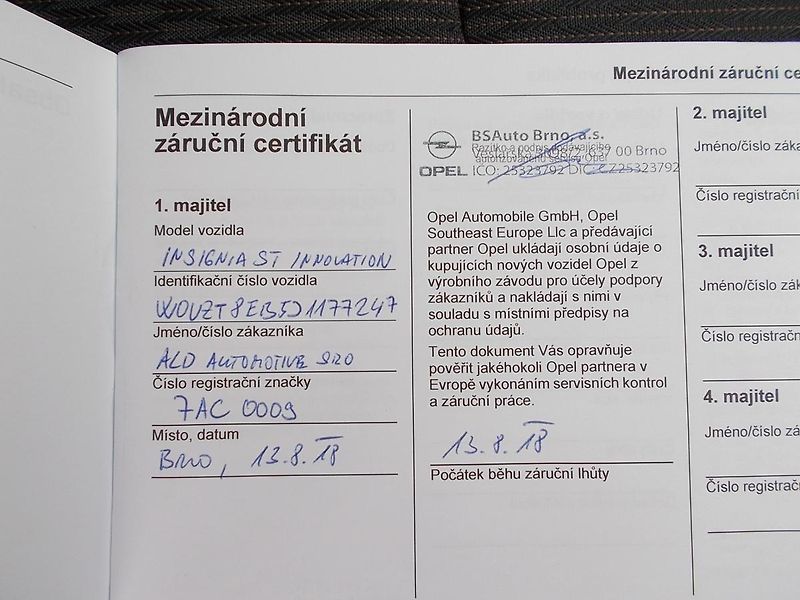 Mezinárodní záruční ce
Mezinárodní
záruční certifikát
1. majitel
Model vozidla
INSIGNIA ST INNOVATION
Identifikační číslo vozidla
W0VZT8EB5J1177247
Jméno/číslo zákazníka
ALD AUTOMOTIVE SRO
Číslo registrační značky
7AC 0009
Místo, datum
BRNO, 13.8.18
BSAuto Brno, a.s.
Razítko a podpis předávajícího
autorizovaného servisu Opel
637 00 Brno
OPEL IČO: 25323792 DIČ: CZ25323792
Opel Automobile GmbH, Opel
Southeast Europe Llc a předávající
partner Opel ukládají osobní údaje o
kupujících nových vozidel Opel z
výrobního závodu pro účely podpory
zákazníků a nakládají s nimi v
souladu s místními předpisy na
ochranu údajů.
Tento dokument Vás opravňuje
pověřit jakéhokoli Opel partnera v
Evropě vykonáním servisních kontrol
a záruční práce.
13.8.18
Počátek běhu záruční lhůty
2. majitel
Jméno/číslo záka
Číslo registrační
3. majitel
Jméno/číslo záka
Číslo registračn
4. majitel
Jméno/číslo zá
Číslo registrač